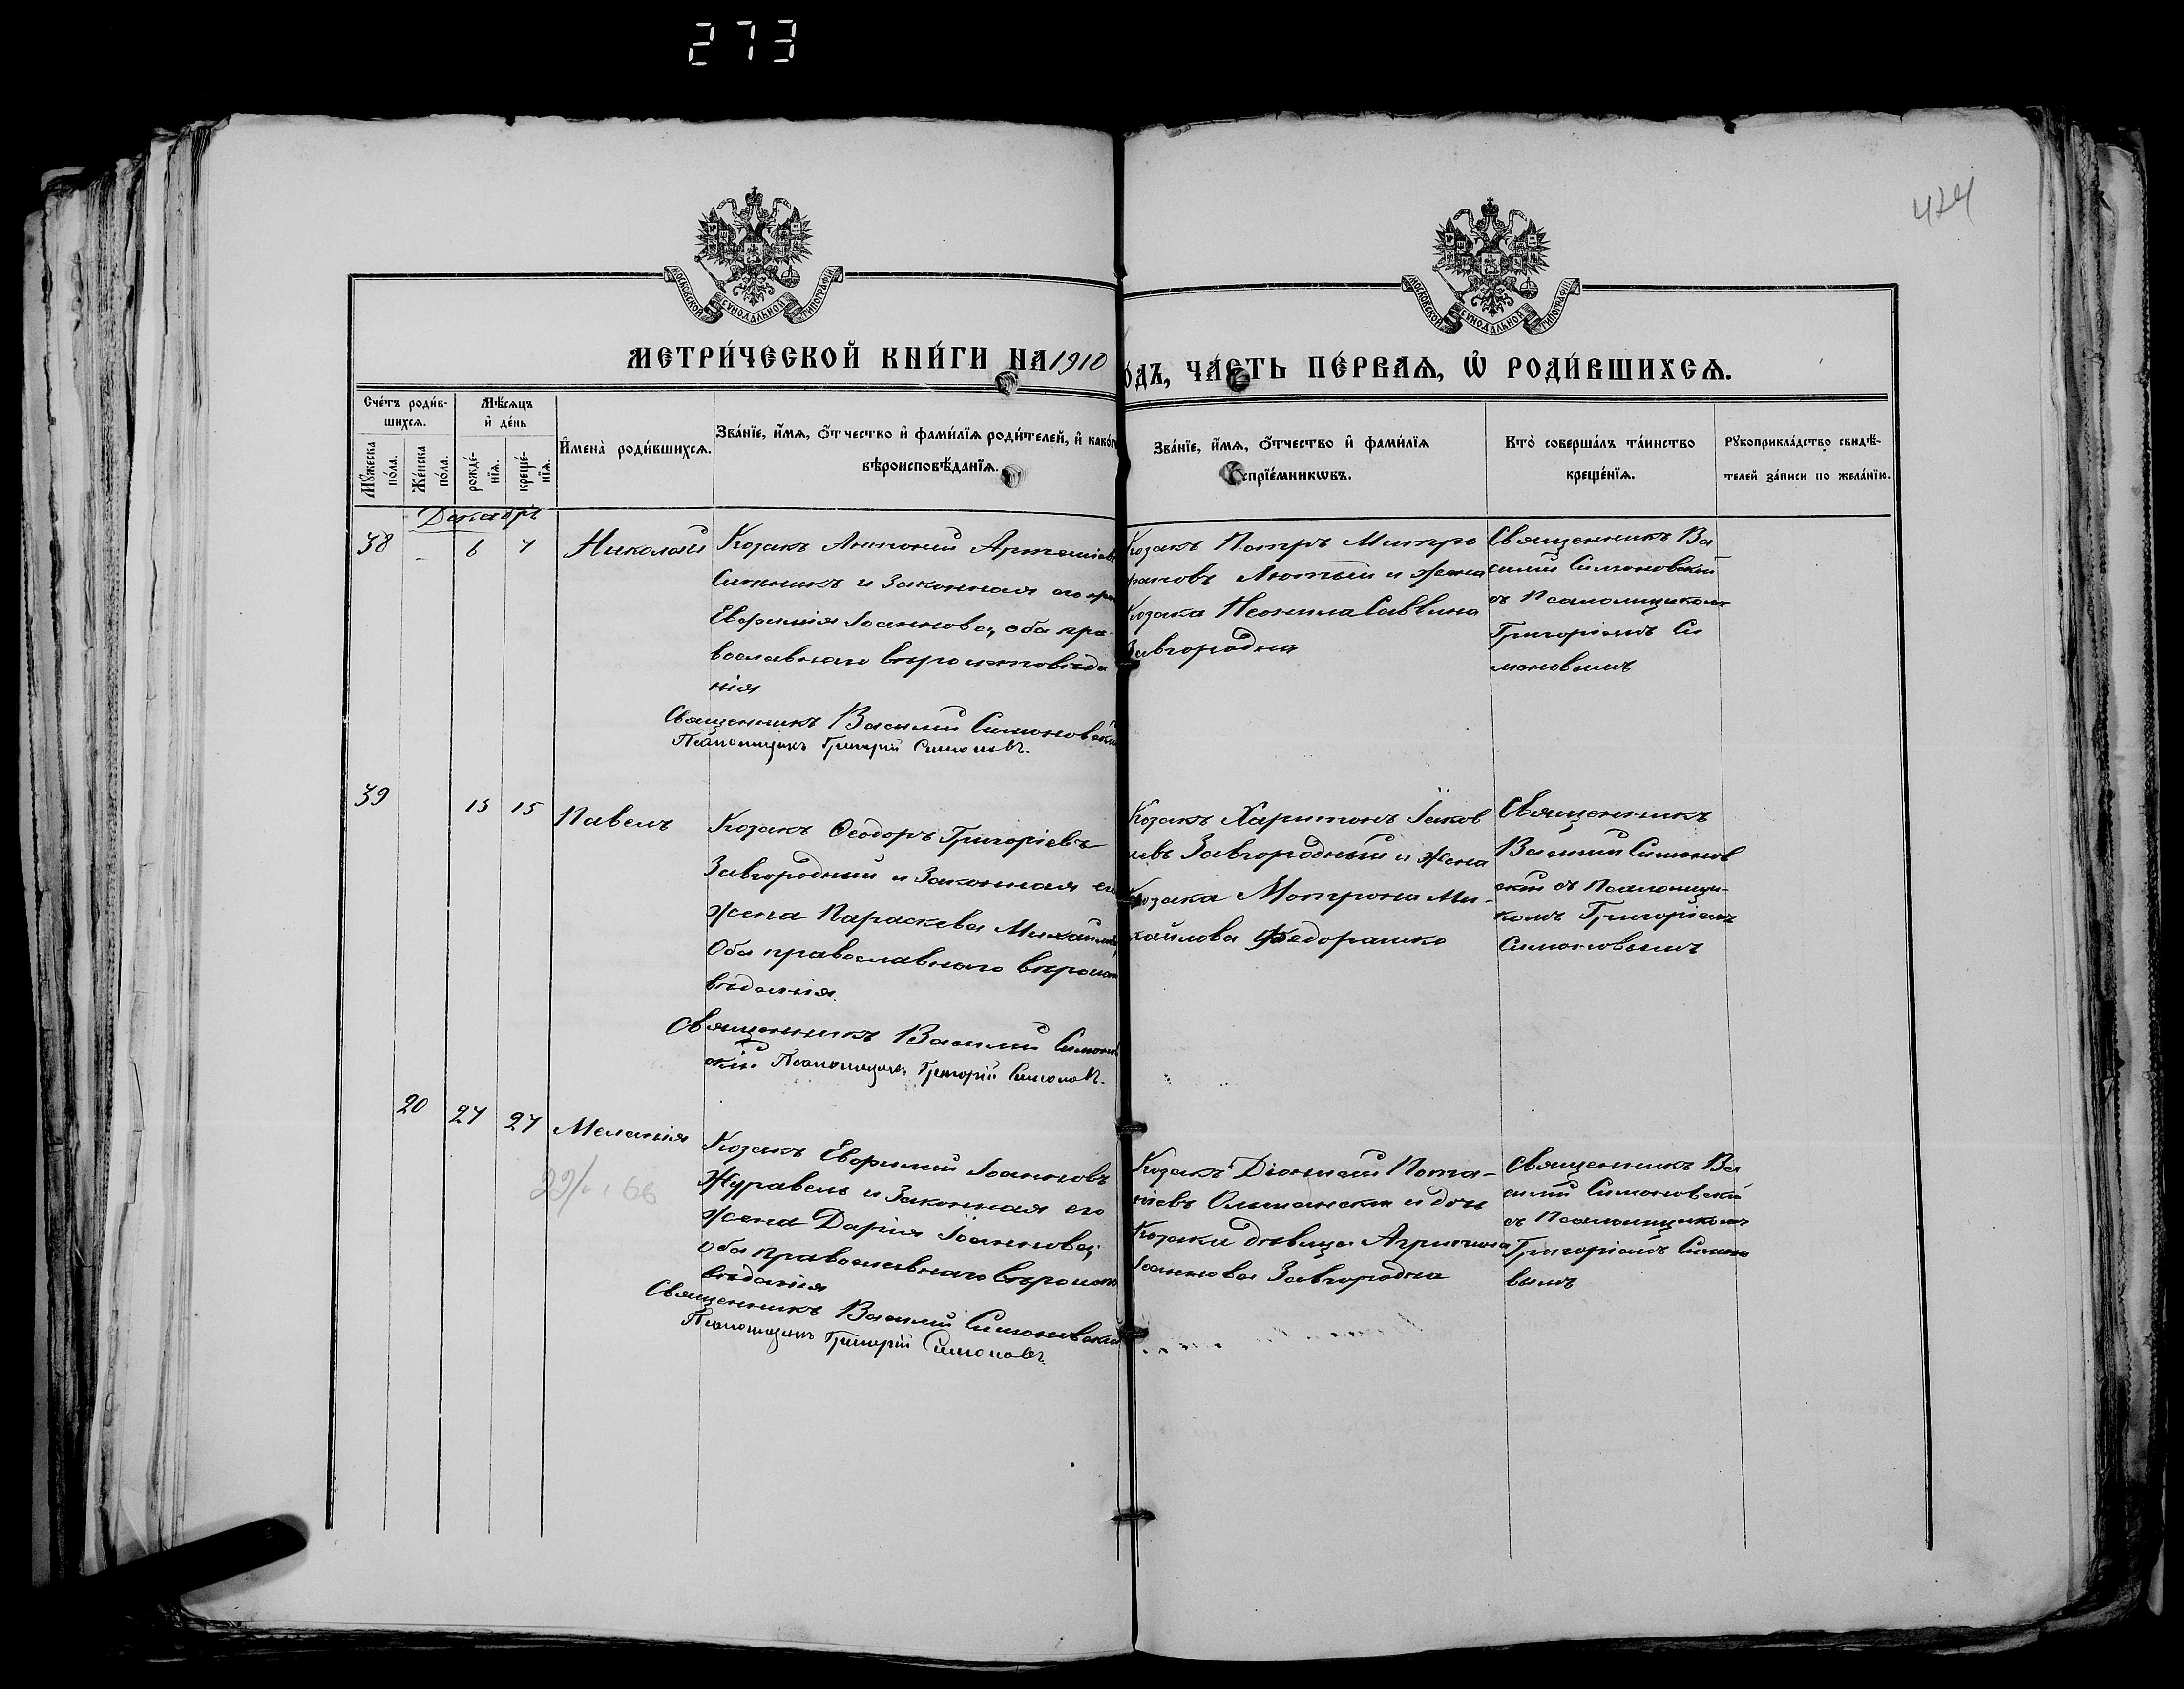 273
424
МОСКОВСКОЙ СѴНОДАЛЬНОЙ ТИПОГРАФІИ
МОСКОВСКОЙ СѴНОДАЛЬНОЙ ТИПОГРАФІИ
МЕТРИ́ЧЕСКОЙ КНИ́ГИ НА 1910
о́дъ, ЧА́СТЬ ПЕ́РВАѦ, Ѡ҆ РОДИ́ВШИХСѦ.
Сче́тъ роди́в-
шихсѧ.
Мꙋ́жеска по́ла.
Же́нска по́ла.
Мѣ́сѧцъ
и҆ де́нь
рожде́-
нїѧ.
креще́-
нїѧ.
И҆мена̀ роди́вшихсѧ.
Зва́нїе, и҆́мѧ, ѻ҆́тчество и҆ фами́лїѧ роди́телей, и҆ како́г
вѣроисповѣ́данїѧ.
Зва́нїе, и҆́мѧ, ѻ҆́тчество и҆ фами́лїѧ
спрїе́мникѡвъ.
Кто̀ соверша́лъ та́инство
креще́нїѧ.
Рꙋкоприкла́дство свидѣ́-
телей за́писи по жела́нїю.
Декабрь
38 – 6 7 Николай
Козакъ Антоній Артеміевъ
и Законная его
Евфимія Іоаннова, оба пра-
вославнаго вѣроисповѣда
нія
Священникъ Василій Симоновскій
Псаломщикъ Григорій Симоновъ.
Козакъ Петръ Митро
фановъ Лютый и жена
Козака Неонила Саввина
Завгородня
Священникъ Ва
силій Симоновскій
съ Псаломщикомъ
Григоріемъ Си
моновымъ
39 15 15 Павелъ
Козакъ Ѳеодоръ Григоріевъ
Завгородный и Законная его
жена Параскева Михайлова
Оба православнаго вѣроиспо
вѣданія.
Священникъ Василій Симонов
скій Псаломщикъ Григорій Симоновъ.
Козакъ Харитонъ Іаков
левъ Завгородный и жена
Козака Мотрона Ми-
хайлова Федорашко
Священникъ
Василій Симонов
скій съ Псаломщи-
комъ Григоріемъ
Симоновымъ
20 27 27 Меланія
Козакъ Евфимій Іоанновъ
Журавель и Законная его
жена Дарія Іоаннова,
оба православнаго вѣроиспо
вѣданія
Священникъ Василій Симоновскій
Псаломщикъ Григорій Симоновъ.
Козакъ Діонисій Пота-
піевъ и дочь
Козака дѣвица Агрипина
Іоаннова Завгородня
Священникъ Ва
силій Симоновскій
съ Псаломщикомъ
Григоріемъ Симоно
вымъ